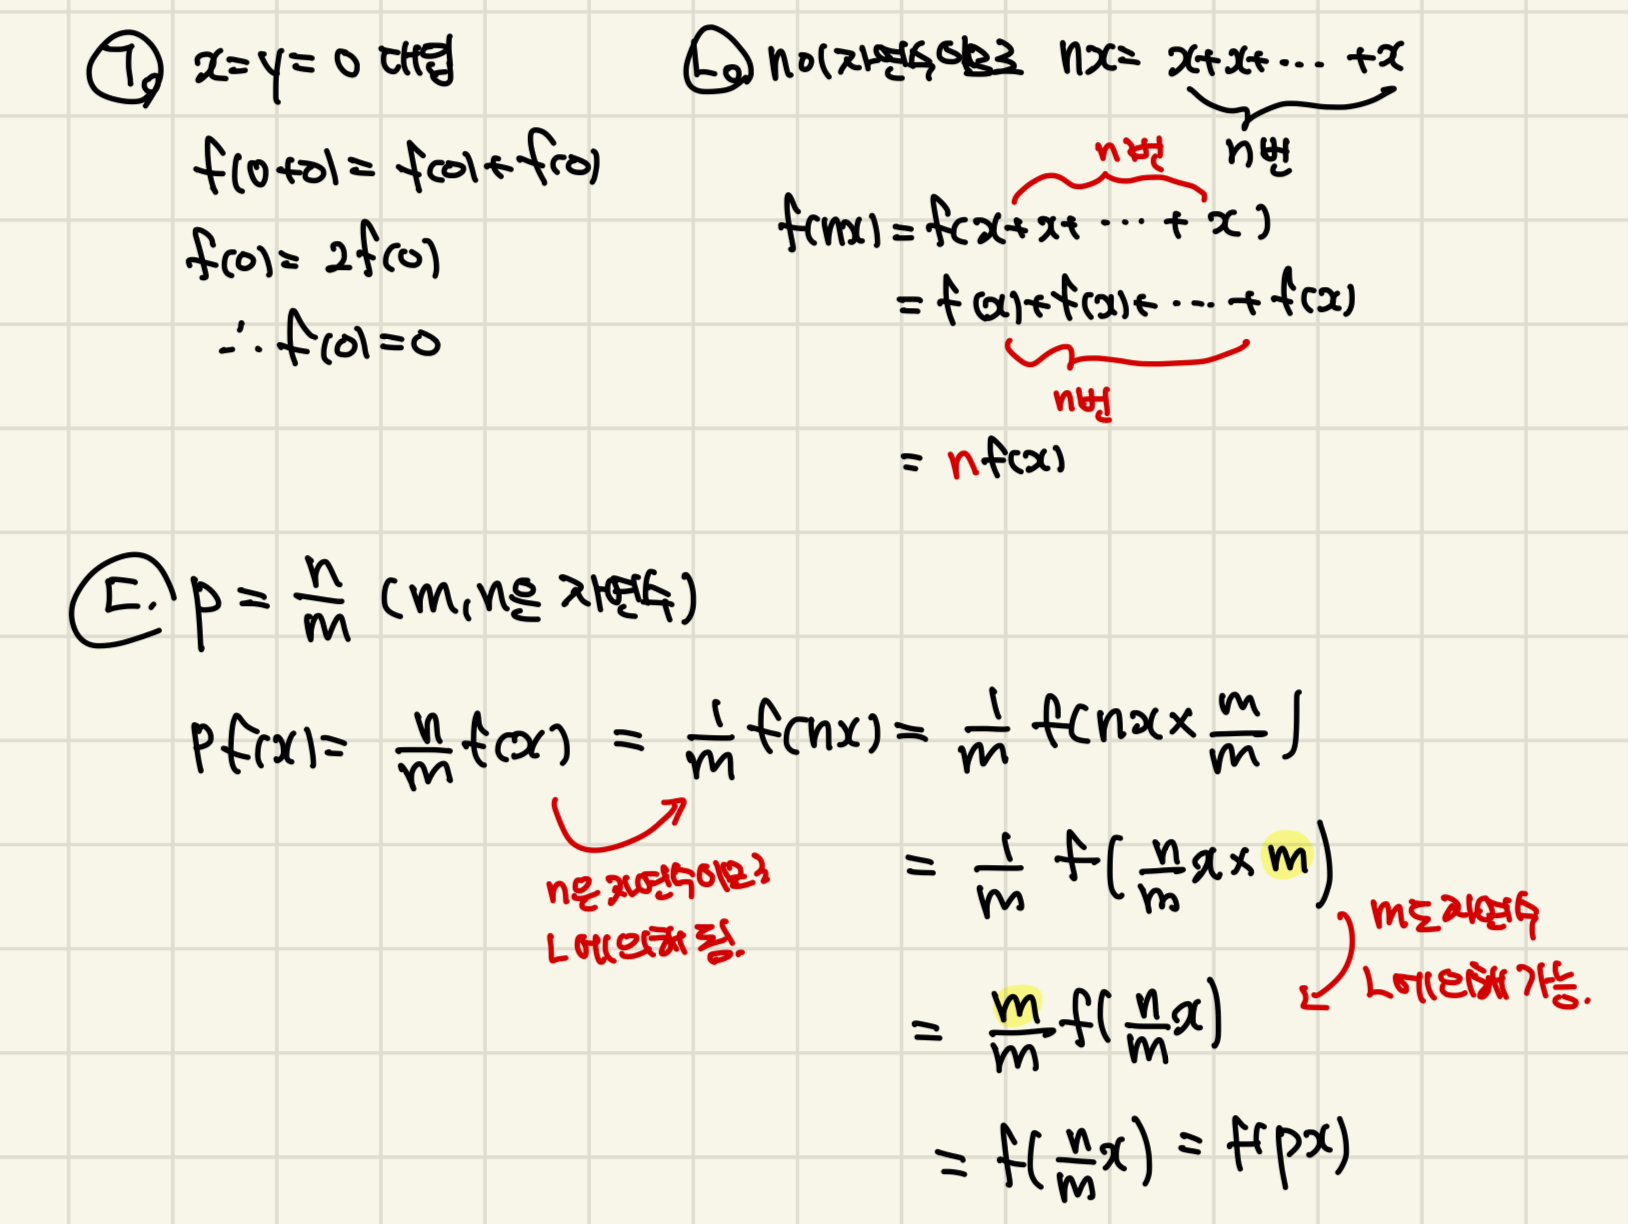 ㄱ. x=y=0 대입
f(0+0)=f(0)+f(0)
f(0)=2f(0)
∴f(0)=0
ㄴ. n이 자연수이므로 nx=x+x+⋯+x
n번
n번
f(nx)=f(x+x+⋯+x)
=f(x)+f(x)+⋯+f(x)
n번
=nf(x)
ㄷ. p=n/m (m,n은 자연수)
pf(x)=n/m f(x)=1/m f(nx)=1/m f(nx×m/m)
n은 자연수이므로
ㄴ에 의해 됨.
=1/m f(n/m x×m)
m도 자연수
ㄴ에 의해 가능.
=m/m f(n/m x)
=f(n/m x)=f(px)